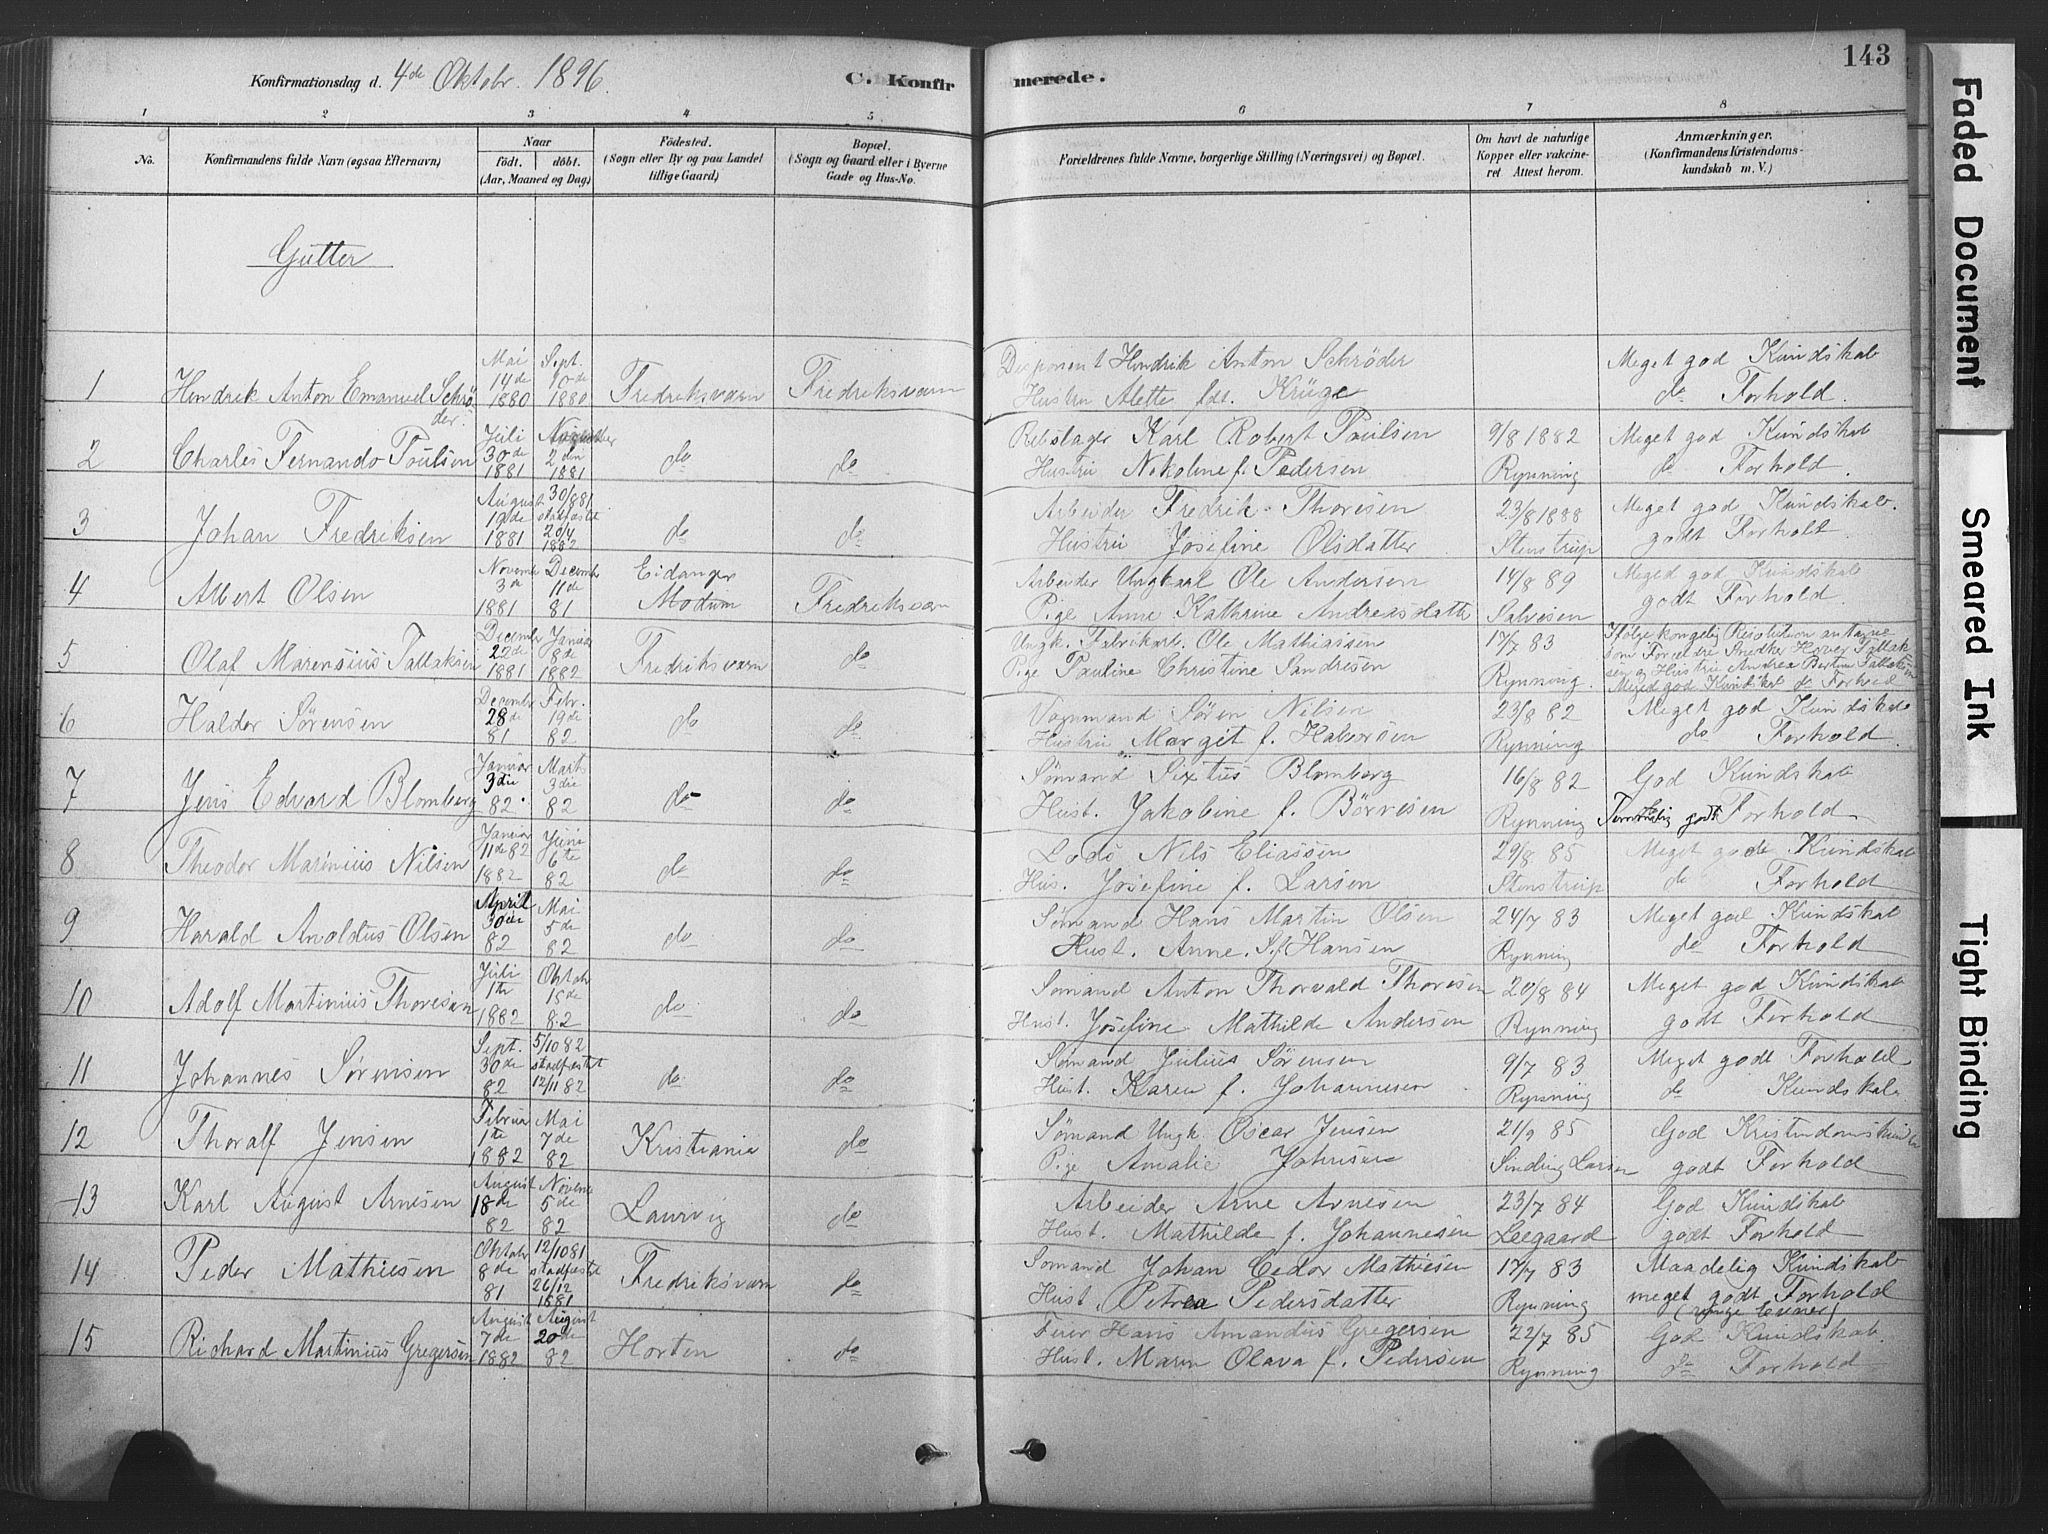 Konfirmationsdag d. 4de Oktobr. 1896. C. Konfirmerede. 143
1 2 3 4 5 6 7 8
No.
Konfirmandens fulde Navn (ogsaa Efternavn)
Naar
födt. döbt.
(Aar, Maaned og Dag)
Födested.
(Sogn eller By og paa Landet
tillige Gaard)
Bopæl.
(Sogn og Gaard eller i Byerne
Gade og Hus-No.
Forældrenes fulde Navne, borgerlige Stilling (Næringsvei) og Bopæl.
Om havt de naturlige
Kopper eller vakcine-
ret Attest herom.
Anmærkninger.
(Konfirmandens Kristendoms-
kundskab m. V.)
Gutter
1 Hendrik Anton Emanuel Schrö der. Mai 14de 1880 Sept. 10de 1880 Fredriksværn Fredriksværn
Disponent Hendrik Anton Schröder
Hustru Alette fdt. Krüge
Meget god Kundskab
do Forhold.
2 Charles Fernando Poulsen Juli 30de 1881 2den 1881 do do
Rebslager Karl Robert Poulsen 9/8 1882 Meget god Kundskab
Hustru Nikoline f. Pedersen Rynning do Forhold.
3 Johan Fredriksen August 19de 1881 30/8 81 stadfæstet 20/4 1882 do do
Arbeider Fredrik Thoresen 23/8 1888 Meget god Kundskab.
Hustru Josefine Olsdatter Stenstrup godt Forholt.
4 Albert Olsen Novembe 3de 1881 Decembe 11de 81 Eidanger Modum Fredriksværn
Arbeider Ungkarl Ole Andersen 14/8 89 Meged god Kundskab
Pige Anne Kathrine Andreasdatte Salvesen godt Forhold.
5 Olaf Marensius Tallaksen Decembe 22de 1881 Januar 8de 1882 Fredriksværn do
Ungk. Fabrikarb. Ole Mathiassen 17/7 83 Ifølge kongelig Resolution antagne
Pige Pauline Christine Sandresen Rynning. som Forældre Snedker Hover Tallak
sen og Hustru Andrea Bertine Tallaksen
Meged god Kundskab do Forhold
6 Haldor Sørensen December 28de 81 Febr. 19de 82 do do
Vognmand Søren Nilsen 23/8 82 Meget god Kundskab
Hustru Margit f. Halvorsen Rynning do Forhold.
7 Jens Edvard Blomberg Januar 3die 82. Marts 3die 82 do do
Sømand Sixtus Blomberg 16/8 82 God Kundskab
Hust. Jakobine f. Börresen Rynning Temmelig godt Forhold
8 Theodor Marinius Nilsen Januar 11de 82 1882 Juni 6te 82 do do
Lods Nils Eliassen 29/8 85 Meget gode Kundskab
Hus. Josefine f. Larsen Stenstrup do Forhold
9 Harald Anoldus Olsen April 30de 82 Mai 5de 82 do do
Sømand Hans Martin Olsen 24/7 83 Meget god Kundskab
Hust. Anne. S. f. Hansen Rynning do Forhold
10 Adolf Martinius Thoresen Juli 1te 1882 Oktobr 15de 82 do do
Sømand Anton Thorvald Thoresen 20/8 84 Meget god Kundskab
Hust. Josefine Mathilde Andersen Rynning godt Forhold
11 Johannes Sørensen Sept. 30de 82 5/10 82 stadfæstet 12/11 82 do do
Sømand Julius Sørensen 9/7 83 Meget godt Forhold
Hust. Karen f. Johannesen Rynning do Kundskab
12 Thoralf Jensen Februa 1te 1882 Mai 7de 82 Kristiania do
Sømand Ungk. Oscar Jensen 21/9 85 God Kristendomskunds
Pige Amalie Johnsen Sinding Larsen godt Forhold
13 Karl August Arnesen August 18de 82 Novem 5de 82 Laurvig do
Arbeider Arne Arnesen 23/7 84 God Kundskab
Hust. Mathilde f. Johannesen Leegaard godt Forhold
14 Peder Mathiesen Oktobr 8de 81 12/10 81 stadfæstet 26/12 1881 Fredriksværn do
Sømand Johan Cedor Mathiesen 17/7 83 Maadelig Kundskab
Hust. Petrea Pedersdatter Rynning meget godt Forhold
15 Richard Martinius Gregersen August 7de 1882 August 20de 82 Horten do
Feier Hans Amandus Gregersen 22/7 85 God Kundskab.
Hust. Maren Olava f. Pedersen Rynning do Forhold
Faded Document
Smeared Ink
Tight Binding